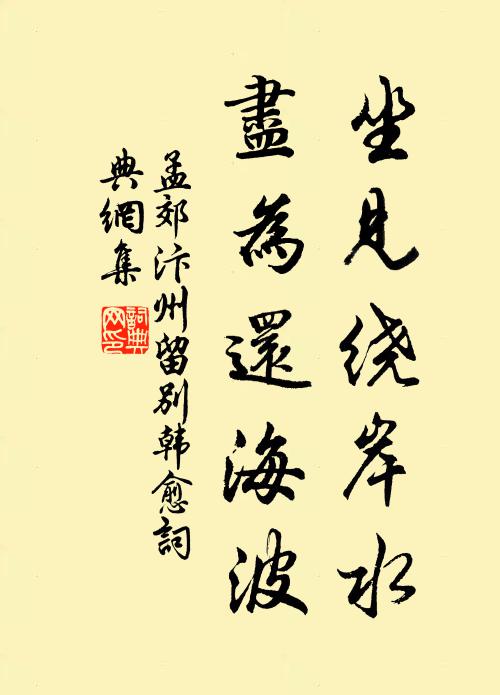 坐見绕岸水
盡為還海波
孟郊汴州留别韩愈詞
典網集
詞典网印